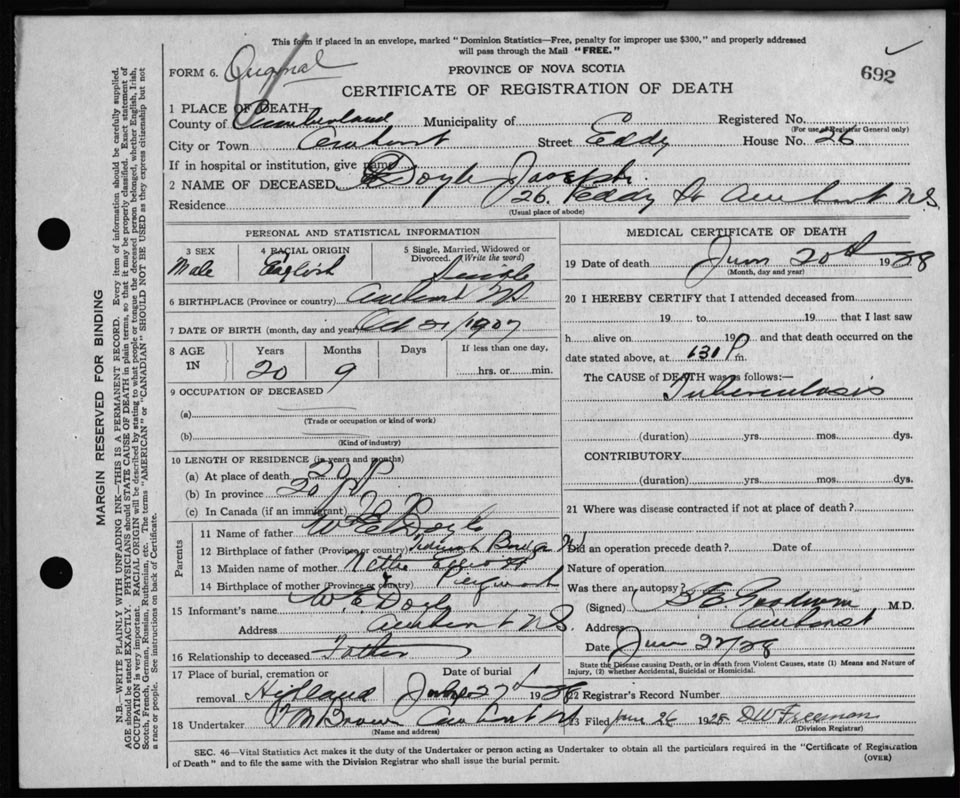 This form if placed in an envelope, marked "Dominion Statistics—Free, penalty for improper use $300," and properly addressed
will pass through the Mail "FREE."
FORM 6. Original
PROVINCE OF NOVA SCOTIA
692
CERTIFICATE OF REGISTRATION OF DEATH
1 PLACE OF DEATH
County of Cumberland Municipality of Registered No.
(For use of Registrar General only)
City or Town Amherst Street Eddy House No. 26
If in hospital or institution, give name
2 NAME OF DECEASED Doyle Joseph
Residence 26. Eddy St Amherst N.S.
(Usual place of abode)
PERSONAL AND STATISTICAL INFORMATION
3 SEX 4 RACIAL ORIGIN 5 Single, Married, Widowed or Divorced. (Write the word)
Male English Single
6 BIRTHPLACE (Province or country) Amherst NS
7 DATE OF BIRTH (month, day and year) Oct 21/1907
8 AGE IN Years Months Days If less than one day,
20 9 hrs. or min.
9 OCCUPATION OF DECEASED
(a)
(Trade or occupation or kind of work)
(b)
(Kind of industry)
10 LENGTH OF RESIDENCE (in years and months)
(a) At place of death 20
(b) In province 20
(c) In Canada (if an immigrant)
Parents
11 Name of father W E Doyle
12 Birthplace of father (Province or country)
13 Maiden name of mother Nettie Elliott
14 Birthplace of mother (Province or country) Pugwash
15 Informant's name W. E. Doyle
Address Amherst N.S.
16 Relationship to deceased Father
17 Place of burial, cremation or removal Date of burial
Highland 27 19
18 Undertaker Brown Amherst NS
(Name and address)
MEDICAL CERTIFICATE OF DEATH
19 Date of death June 20th 1928
(Month, day and year)
20 I HEREBY CERTIFY that I attended deceased from
19 to 19 that I last saw
h alive on 19 and that death occurred on the
date stated above, at 130 P m.
The CAUSE of DEATH was as follows:—
Tuberculosis
(duration) yrs. mos. dys.
CONTRIBUTORY
(duration) yrs. mos. dys.
21 Where was disease contracted if not at place of death?
Did an operation precede death? Date of
Nature of operation
Was there an autopsy?
(Signed) M.D.
Address Amherst
Date June 22/28
State the Disease causing Death, or in death from Violent Causes, state (1) Means and Nature of
Injury, (2) whether Accidental, Suicidal or Homicidal.
22 Registrar's Record Number
23 Filed June 26 1928 DW Freeman
(Division Registrar)
SEC. 46—Vital Statistics Act makes it the duty of the Undertaker or person acting as Undertaker to obtain all the particulars required in the "Certificate of Registration
of Death" and to file the same with the Division Registrar who shall issue the burial permit.
(OVER)
MARGIN RESERVED FOR BINDING
N.B.—WRITE PLAINLY WITH UNFADING INK—THIS IS A PERMANENT RECORD. Every item of information should be carefully supplied.
AGE should be stated EXACTLY. PHYSICIANS should STATE CAUSE OF DEATH in plain terms, so that it may be properly classified. Exact statement of
OCCUPATION is very important. RACIAL ORIGIN will be described by stating to what people or tongue the deceased person belonged, whether English, Irish,
Scotch, French, German, Russian, Ruthenian, etc. The terms "AMERICAN" or "CANADIAN" SHOULD NOT BE USED as they express citizenship but not
a race or people. See instructions on back of Certificate.